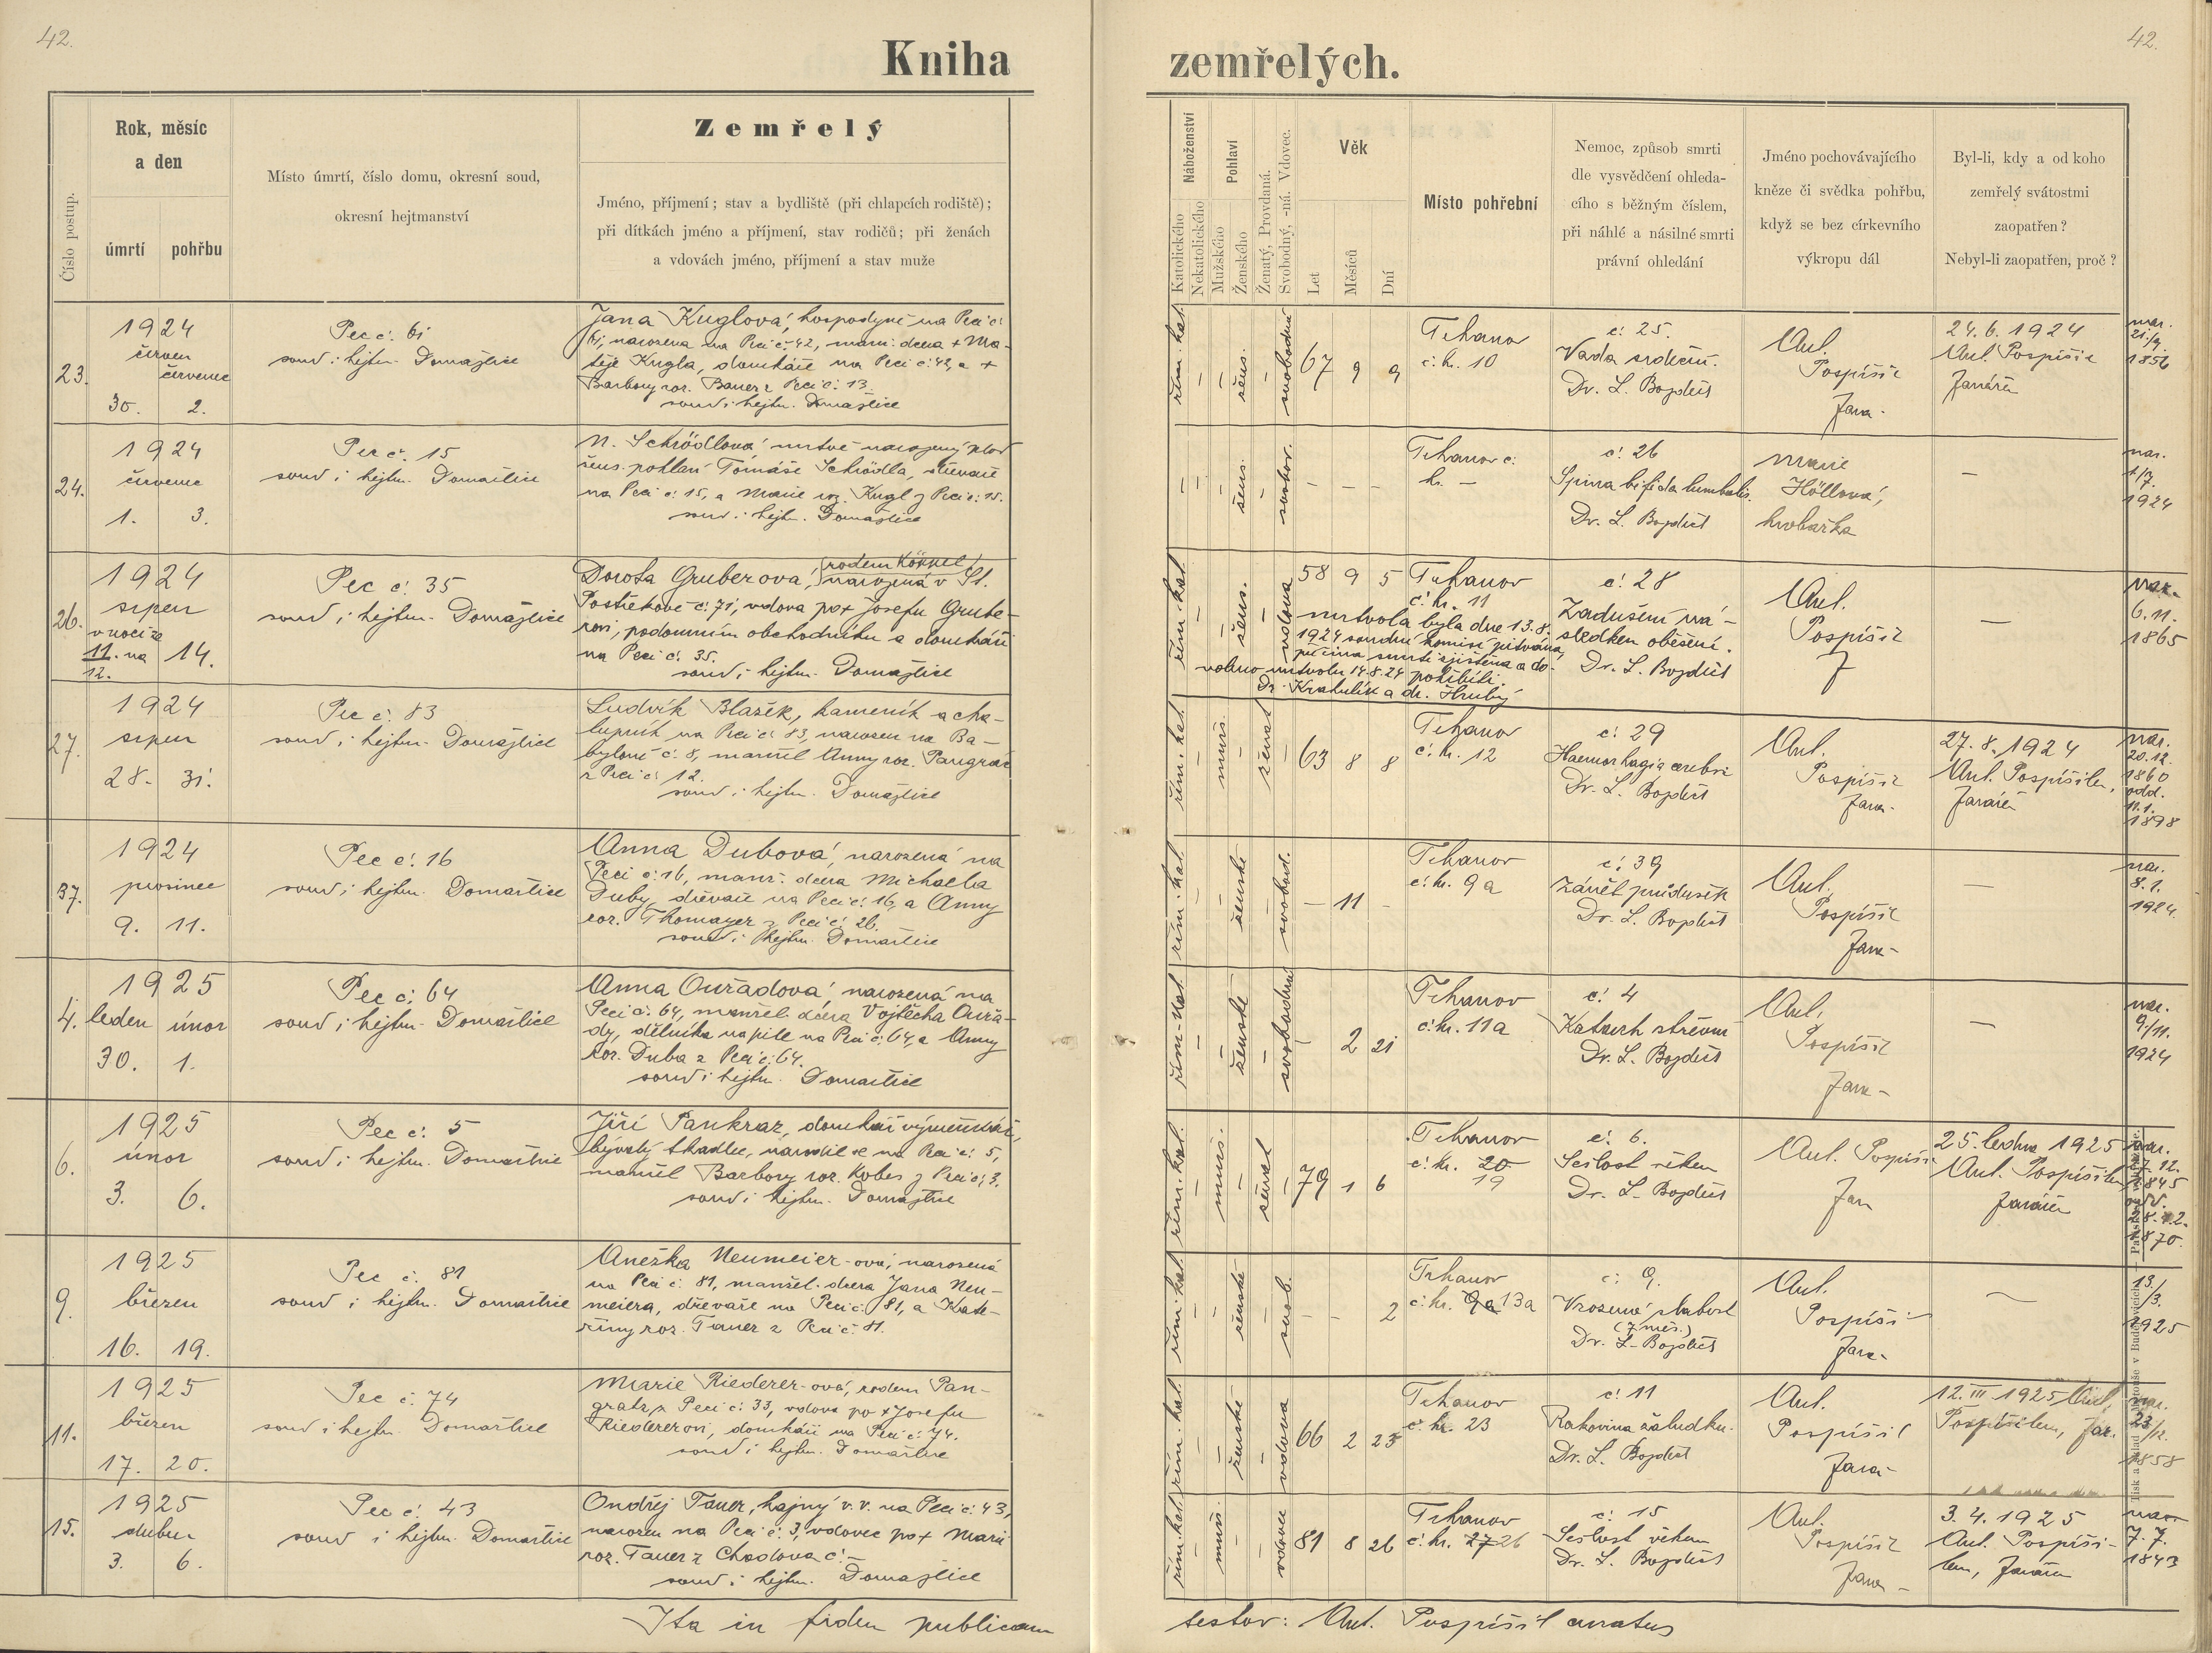 42.
Kniha
Rok, měsíc
a den
úmrtí
pohřbu
Číslo postup.
Místo úmrtí, číslo domu, okresní soud,
okresní hejtmanství
Zemřelý
Jméno, příjmení; stav a bydliště (při chlapcích rodiště);
při dítkách jméno a příjmení, stav rodičů; při ženách
a vdovách jméno, příjmení a stav muže
23.
1924
červen
červenec
30. 2.
Pec č. 61
soud i hejtm. Domažlice
Jana Kuglová, hospodyně na Peci č.
61, narozena na Peci č. 42, manž. dcera + Ma-
těje Kugla, domkáře na Peci č. 42, a +
Barbory roz. Bauer z Peci č. 13.
soud i hejtm. Domažlice
24.
1924
červenec
1. 3.
Pec č. 15
soud i hejtm. Domažlice
N. Schrödlová, mrtvě narozený plod
žens. pohlaví Tomáše Schrödla, dřevaře
na Peci č. 15, a Marie roz. Kugl z Peci č. 15.
soud i hejtm. Domažlice
26.
1924
srpen
v noci ze
11. na 14.
12.
Pec č. 35
soud i hejtm. Domažlice
rodem
Dorota Gruberova, narozená v St.
Postřekově č. 71, vdova po + Josefu Grube-
rovi, podomním obchodníku a domkáři
na Peci č. 35.
soud i hejtm. Domažlice
27.
1924
srpen
28. 31.
Pec č. 83
soud i hejtm. Domažlice
Ludvík Blažek, kameník a cha-
lupník na Peci č. 83, narozen na Ba-
byloně č. 8, manžel Anny roz. Pangrác
z Peci č. 12.
soud i hejtm. Domažlice
37.
1924
prosinec
9. 11.
Pec č. 16
soud i hejtm. Domažlice
Anna Dubová, narozená na
Peci č. 16, manž. dcera Michaela
Duby, dřevaře na Peci č. 16, a Anny
roz. Thomayer z Peci č. 26.
soud i hejtm. Domažlice
4.
1925
leden únor
30. 1.
Pec č. 64
soud i hejtm. Domažlice
Anna Ouřadová, narozená na
Peci č. 64, manžel. dcera Vojtěcha Ouřa-
dy, dělníka na pile na Peci č. 64, a Anny
roz. Duba z Peci č. 64.
soud i hejtm. Domažlice
6.
1925
únor
3. 6.
Pec č. 5
soud i hejtm. Domažlice
Jiří Pankraz, domkář výměnkář,
bývalý tkadlec, narodil se na Peci č. 5,
manžel Barbory roz. Kobes z Peci č. 3.
soud i hejtm. Domažlice
9.
1925
březen
16. 19.
Pec č. 81
soud i hejtm. Domažlice
Anežka Neumeier-ová, narozená
na Peci č. 81, manžel. dcera Jana Neu-
meiera, dřevaře na Peci č. 81, a Kate-
řiny roz. Tauer z Peci č. 81.
11.
1925
březen
17. 20.
Pec č. 74
soud i hejtm. Domažlice
Marie Riederer-ová, rodem Pan-
gratz z Peci č. 33, vdova po + Josefu
Riedererovi, domkáři na Peci č. 74.
soud i hejtm. Domažlice
15.
1925
duben
3. 6.
Pec č. 43
soud i hejtm. Domažlice
Ondřej Tauer, hajný v. v. na Peci č. 43,
narozen na Peci č. 3, vdovec po + Marii
roz. Tauer z Chodova č. -
soud i hejtm. Domažlice
Ita in fidem publicam
42.
zemřelých.
Náboženství
Katolického
Nekatolického
Pohlaví
Mužského
Ženského
Ženatý, Provdaná.
Svobodný, -ná. Vdovec.
Věk
Let
Měsíců
Dní
Místo pohřební
Nemoc, způsob smrti
dle vysvědčení ohleda-
cího s běžným číslem,
při náhlé a násilné smrti
právní ohledání
Jméno pochovávajícího
kněze či svědka pohřbu,
když se bez církevního
výkropu dál
Byl-li, kdy a od koho
zemřelý svátostmi
zaopatřen?
Nebyl-li zaopatřen, proč?
řím. kat. - - žens. - svobodná 67 9 9
Trhanov
č. hr. 10
č. 25.
Vada srdeční.
Dr. L. Bozděch
Ant.
Pospíšil
farář
24.6.1924
Ant. Pospíšil
farářem
nar.
21./9.
1856
- - - žens. - svobod. - - -
Trhanov č.
hr. -
č. 26
Spina bifida lumbalis.
Dr. L. Bozděch
Marie
Höllová,
hrobařka
-
nar.
1./7.
1924
řím. kat. - - žens. - vdova 58 9 5
Trhanov
č. hr. 11
mrtvola byla dne 13.8.
1924 soudní komisí pitvána,
příčina smrti zjištěna a do-
voleno mrtvolu 14.8.24 pohřbíti.
Dr. Krahulík a dr. Hrubý
č. 28
Zadušení ná-
sledkem oběšení.
Dr. L. Bozděch
Ant.
Pospíšil
f
-
nar.
6.11.
1865
řím. kat. - muž. - ženat - 63 8 8
Trhanov
č. hr. 12
č. 29
Haemorhagia cerebri
Dr. L. Bozděch
Ant.
Pospíšil
farář
27.8.1924
Ant. Pospíšilem,
farářem
nar.
20.12.
1860
odd.
11.1.
1898
řím. kat. - - ženské - svobod. - 11 -
Trhanov
č. hr. 9a
č. 39
Zánět průdušek
Dr. L. Bozděch
Ant.
Pospíšil
farář
-
nar.
8.1.
1924.
řím. kat. - - ženské - svobodná 2 21
Trhanov
č. hr. 11a
č. 4
Katarrh střevní
Dr. L. Bozděch
Ant.
Pospíšil
farář
-
nar.
9./11.
1924
řím. kat. - muž. - ženat - 79 1 6
Trhanov
č. hr. 20
19
č. 6.
Sešlost věkem
Dr. L. Bozděch
Ant. Pospíšil
far
25. ledna 1925
Ant. Pospíšilem
farářem
nar.
27.12.
1845
odd.
28.12.
1870.
řím. kat. - - ženské - svob. - - 2
Trhanov
č. hr. 9a 13a
č. 9.
Vrozená slabost
(7 měs.)
Dr. L. Bozděch
Ant.
Pospíši-
farář
-
13.
/3.
1925
řím. kat. - - ženské - vdova 66 2 23
Trhanov
č. hr. 23
č. 11
Rakovina žaludku.
Dr. L. Bozděch
Ant.
Pospíšil
farář
12.III.1925 Ant.
Pospíšilem, far.
nar.
23./12.
1858
řím. kat. - muž. - - vdovec 81 8 26
Trhanov
č. hr. 27 26
č. 15
Sešlost věkem
Dr. L. Bozděch
Ant.
Pospíšil
farář
3.4.1925
Ant. Pospíši-
lem, farářem
nar.
7.7.
1843
testor: Ant. Pospíšil curatus